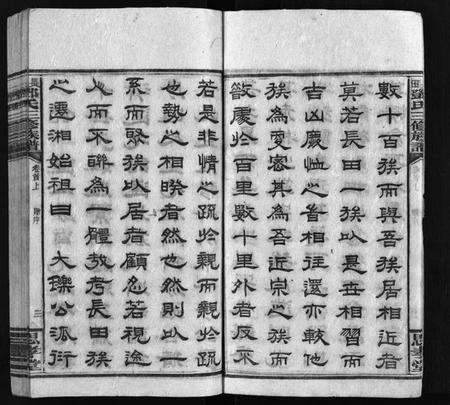 數十百族而與吾族居相近者
莫若長田一族以是世相習而
吉凶慶恤之者相往還亦較他
族為更密其為吾近宗之族而
散處於百里數十里外者反不
若是非情之疏於親而親於疏
也勢之相睽者然也然則以一
系而聚族以居者顧忍若視途
人而不聯為一體哉考長田族
之遷湘始祖曰 大瓅公派衍
鄧氏三修族譜
卷首上
序
三